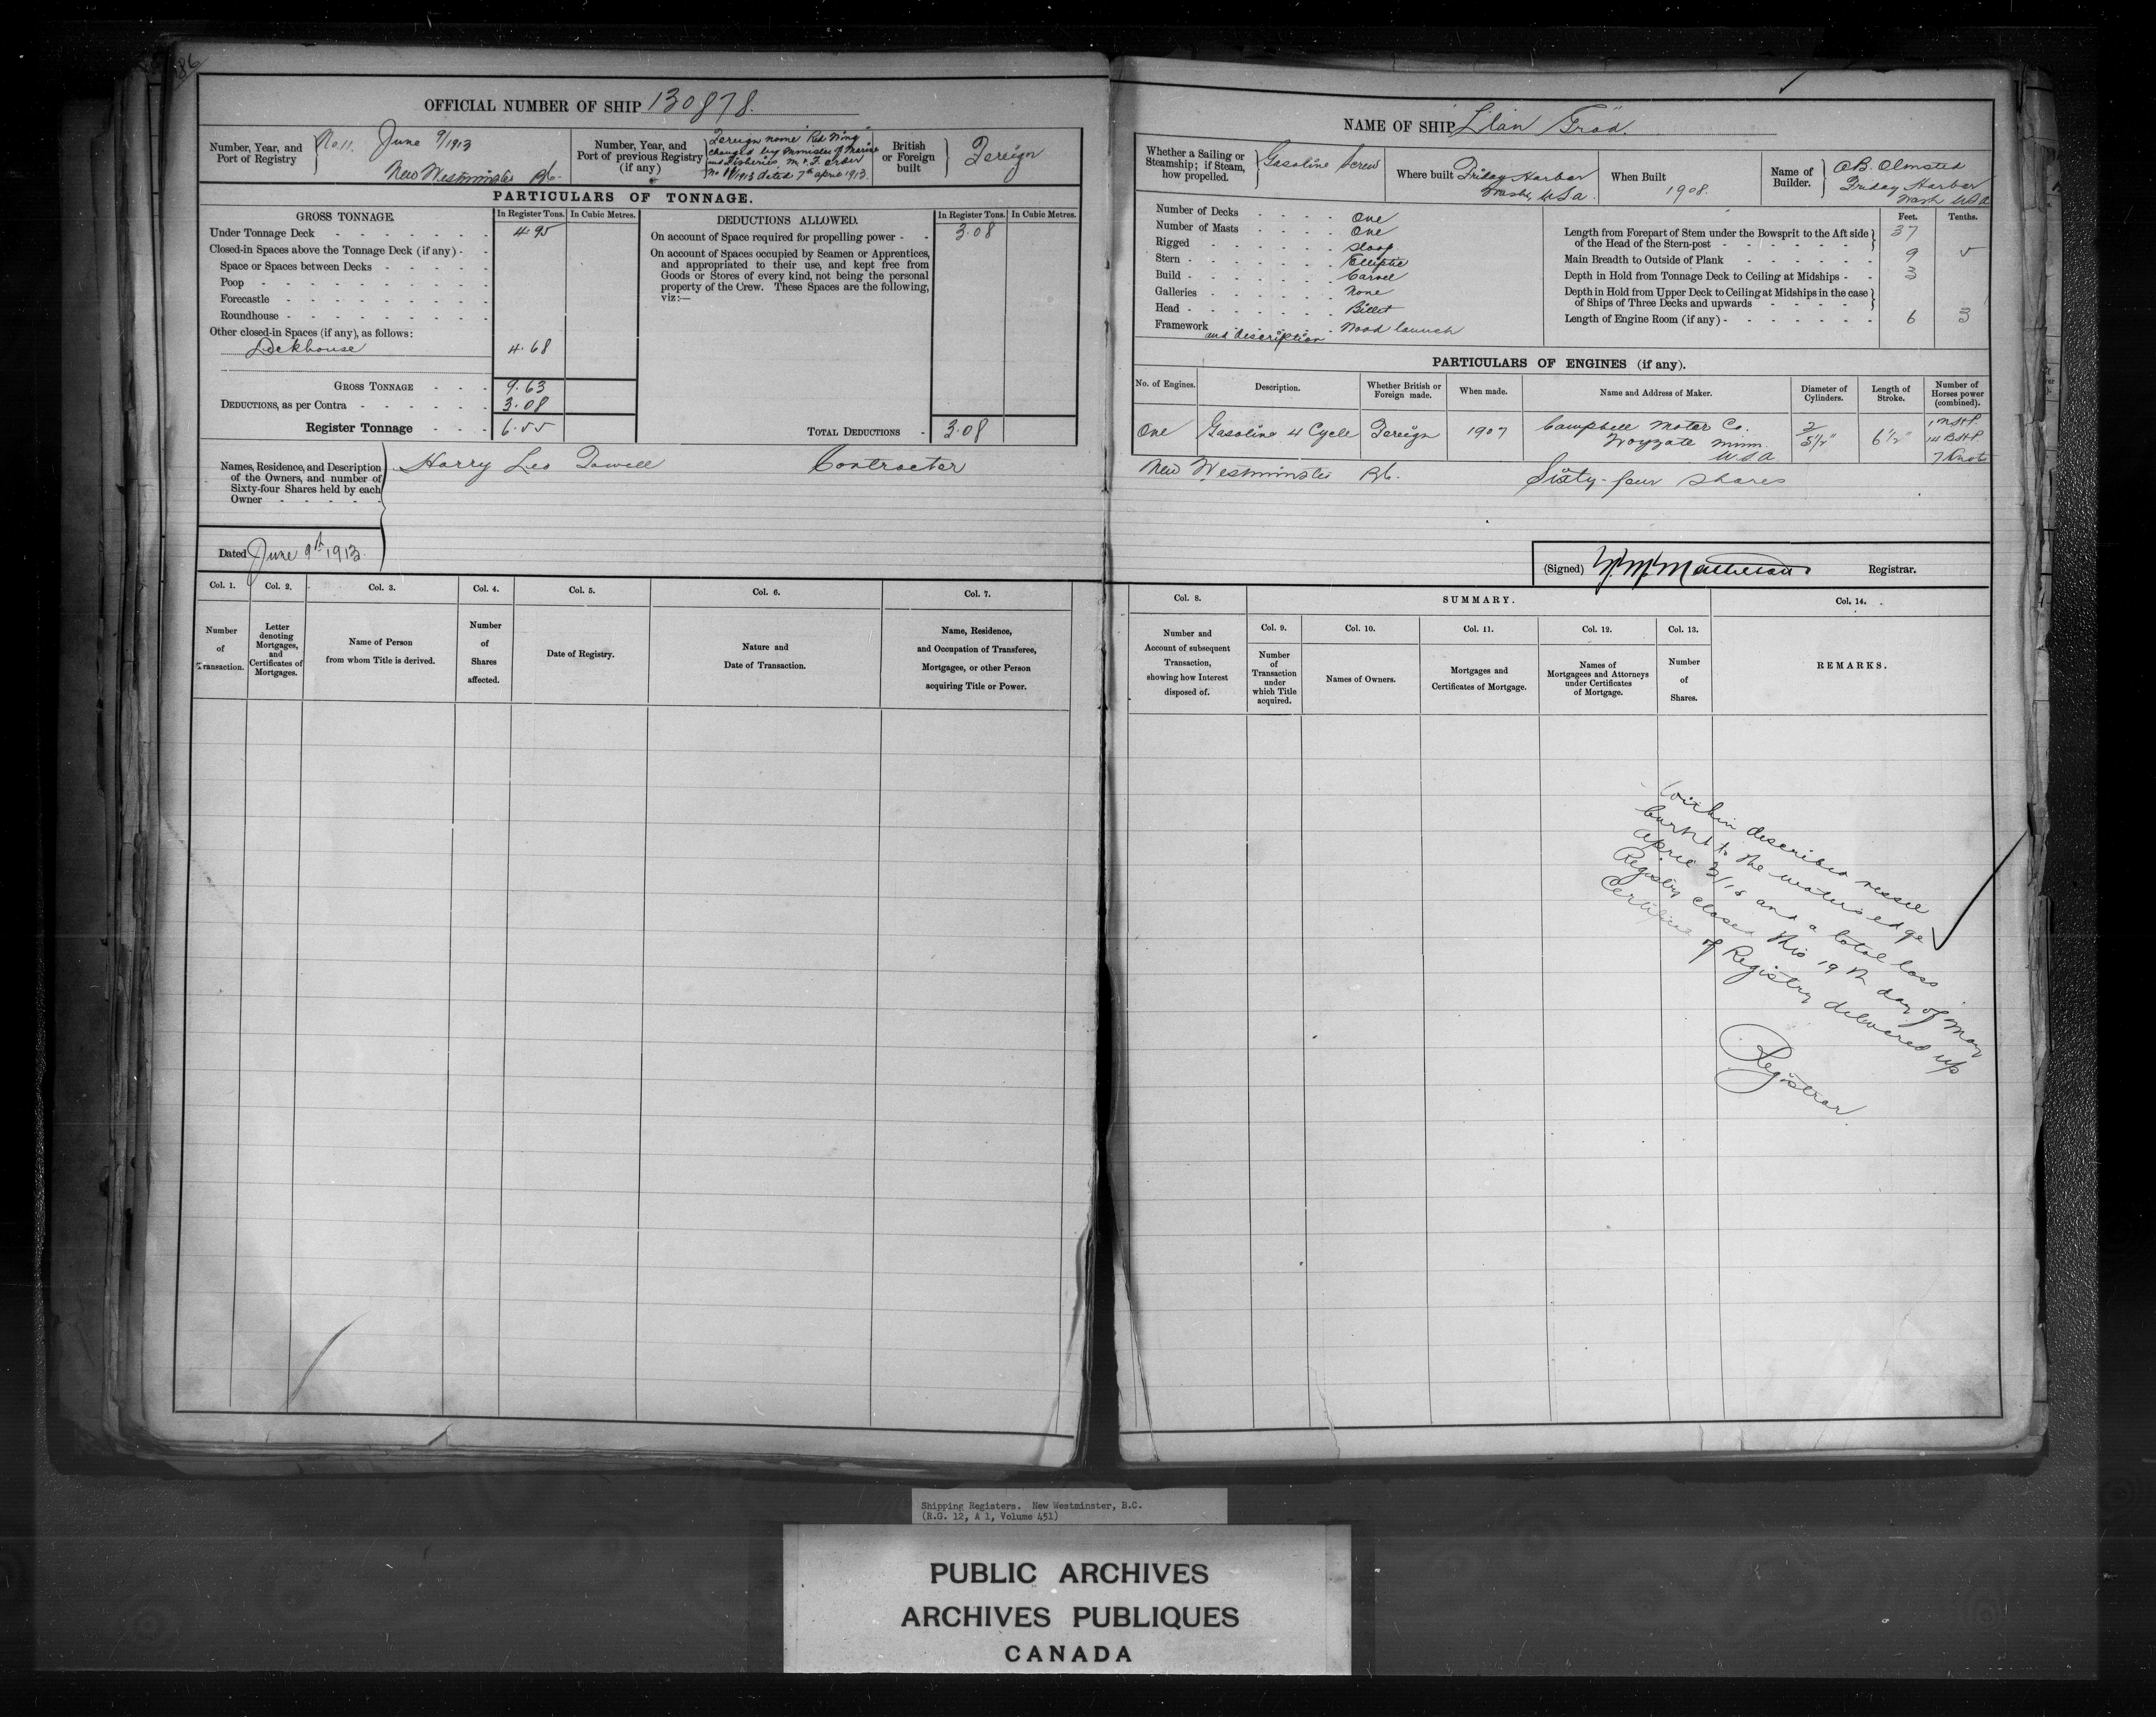 86
OFFICIAL NUMBER OF SHIP 130878.
Number, Year, and Port of Registry
No 11. June 9/1913
New Westminster B.C.
Number, Year, and Port of previous Registry (if any)
Foreign name "Red Wing"
changed by Minister of Marine
and Fisheries, M. & F. order
dated 7th April 1913.
British or Foreign built
Foreign
PARTICULARS OF TONNAGE.
GROSS TONNAGE.
In Register Tons. In Cubic Metres.
Under Tonnage Deck 4.95
Closed-in Spaces above the Tonnage Deck (if any)
Space or Spaces between Decks
Poop
Forecastle
Roundhouse
Other closed-in Spaces (if any), as follows:
Deckhouse 4.68
GROSS TONNAGE 9.63
DEDUCTIONS, as per Contra 3.08
Register Tonnage 6.55
DEDUCTIONS ALLOWED.
In Register Tons. In Cubic Metres.
On account of Space required for propelling power 3.08
On account of Spaces occupied by Seamen or Apprentices,
and appropriated to their use, and kept free from
Goods or Stores of every kind, not being the personal
property of the Crew. These Spaces are the following,
viz:—
TOTAL DEDUCTIONS 3.08
Names, Residence, and Description
of the Owners, and number of
Sixty-four Shares held by each
Owner
Harry Leo Contractor
Dated June 9th 1913.
Col. 1. Number of Transaction.
Col. 2. Letter denoting Mortgages, and Certificates of Mortgages.
Col. 3. Name of Person from whom Title is derived.
Col. 4. Number of Shares affected.
Col. 5. Date of Registry.
Col. 6. Nature and Date of Transaction.
Col. 7. Name, Residence, and Occupation of Transferee, Mortgagee, or other Person acquiring Title or Power.
NAME OF SHIP Llan Grad.
Whether a Sailing or Steamship; if Steam, how propelled.
Gasoline Screw
Where built Friday Harbor
Wash, USA.
When Built
1908.
Name of Builder.
Olmsted
Friday Harbor
Wash USA
Number of Decks One
Number of Masts One
Rigged Sloop
Stern Elliptic
Build Carvel
Galleries None
Head Billet
Framework and description Wood launch
Feet. Tenths.
Length from Forepart of Stem under the Bowsprit to the Aft side of the Head of the Stern-post 37
Main Breadth to Outside of Plank 9 5
Depth in Hold from Tonnage Deck to Ceiling at Midships 3
Depth in Hold from Upper Deck to Ceiling at Midships in the case of Ships of Three Decks and upwards
Length of Engine Room (if any) 6 3
PARTICULARS OF ENGINES (if any).
No. of Engines. Description. Whether British or Foreign made. When made. Name and Address of Maker. Diameter of Cylinders. Length of Stroke. Number of Horses power (combined).
One Gasoline 4 Cycle Foreign 1907 Campbell Motor Co. 2 1 NHP
Wayzata Minn. 5½" 6½" 14 BHP
USA 7 Knots
New Westminster B.C. Sixty-four shares
(Signed) Registrar.
Col. 8. Number and Account of subsequent Transaction, showing how Interest disposed of.
SUMMARY.
Col. 9. Number of Transaction under which Title acquired.
Col. 10. Names of Owners.
Col. 11. Mortgages and Certificates of Mortgage.
Col. 12. Names of Mortgagees and Attorneys under Certificates of Mortgage.
Col. 13. Number of Shares.
Col. 14. REMARKS.
Within described vessel
burnt to the waters edge
April and a total loss
Registry closed this 19th day of May
Certificate of Registry delivered up
Registrar
Shipping Registers. New Westminster, B.C.
(R.G. 12, A 1, Volume 451)
PUBLIC ARCHIVES
ARCHIVES PUBLIQUES
CANADA